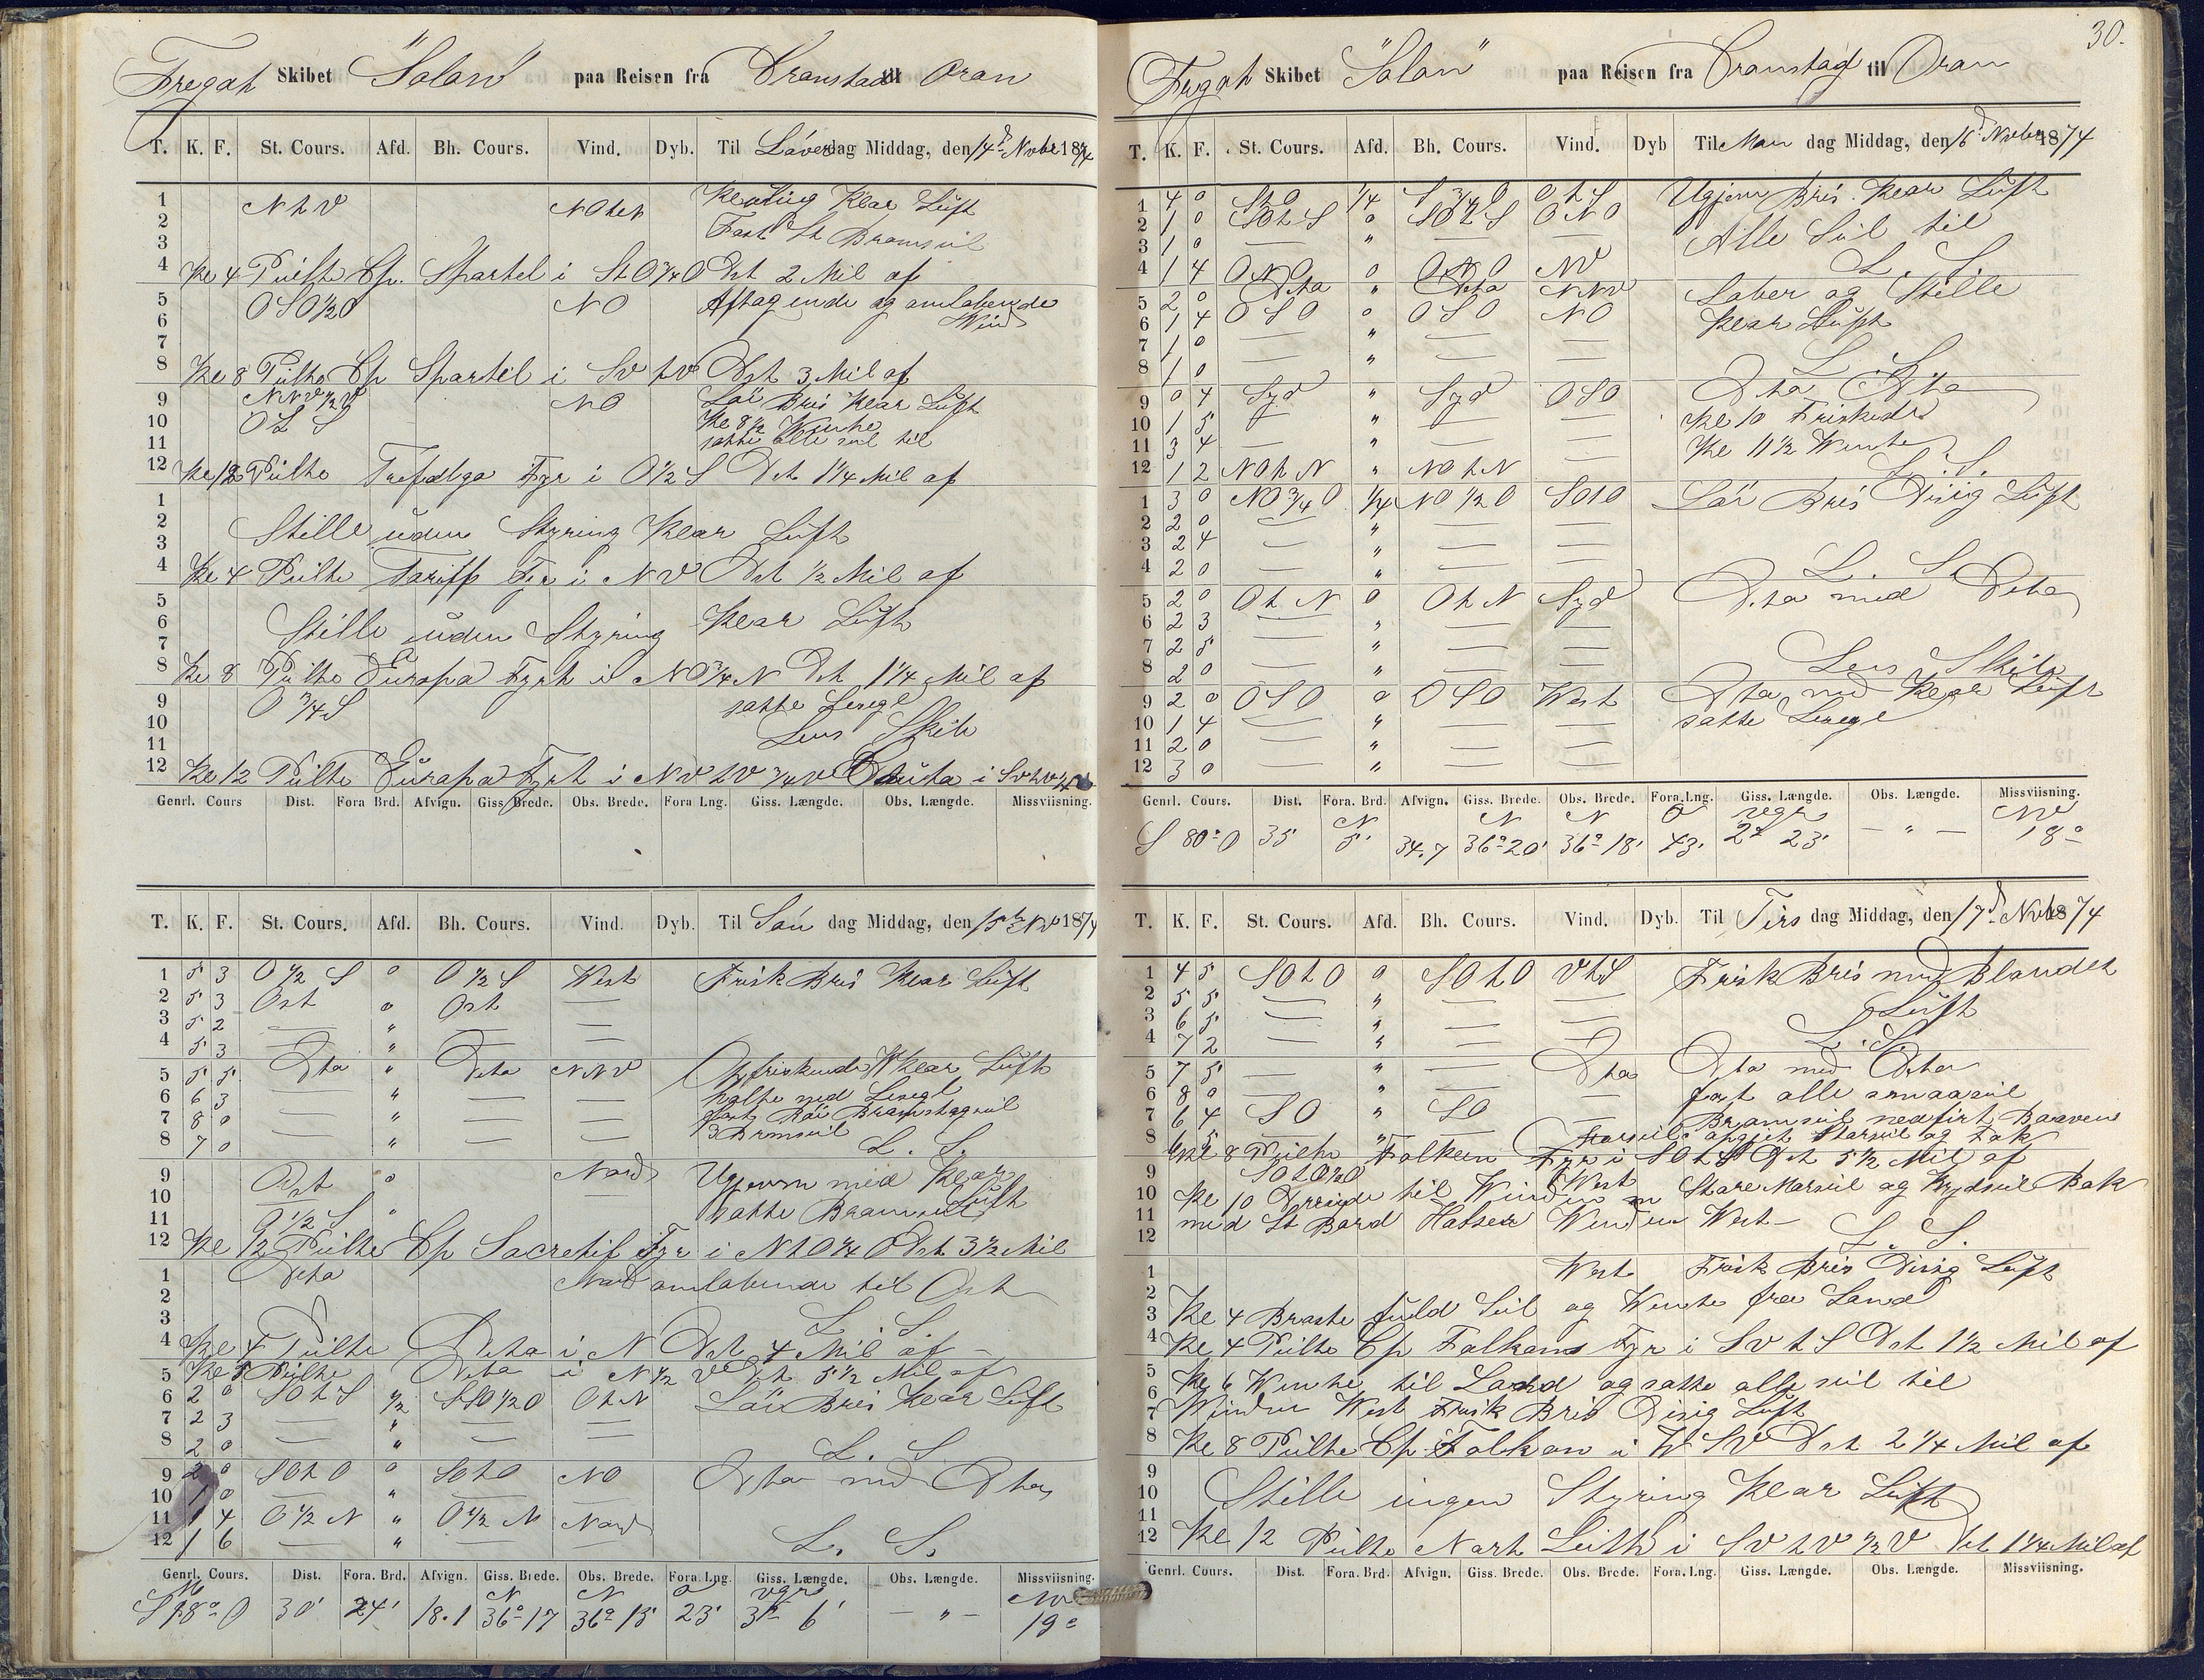 Fregat Skibet "Solon" paa Reisen fra Cronstad til Oran
T. K. F. St. Cours. Afd. Bh. Cours. Vind. Dyb. Til Löverdag Middag, den 14d Novbr 1874
1 NtV NOtN Klar Luft
2 Fast St Bramseil
3
4 Kl 4 Peilte Cp. Spartel i StO 3/4 O Dst 2 Mil af
5 OSO 1/2 O NO Aftagende og omlobende
6 Vind
7
8 Kl 8 Peilte Cp Spartel i SV t V Dst 3 Mil af
9 NNV 1/2 V NO Löi Bris klar Luft
10 OtS Kl 8 1/2 Vendte
11 satte alle seil til
12 Kl 12 Peilte Fyr i O 1/2 S Dst 1 1/4 Mil af
1
2 Stille uden Styring Klar Luft
3
4 Kl 4 Peilte Tariffa Fyr i NV Dst 1/2 Mil af
5
6 Stille uden Styring Klar Luft
7
8 Kl 8 Peilte Europa Fyrt i NO 3/4 N Dst 1 1/4 Mil af
9 O 3/4 S satte Lesegl
10 Lens Skib
11
12 Kl 12 Peilte Europa Fyrt i NVtV 3/4 V Ceuta i SVtV
Genrl. Cours Dist. Fora Brd. Afvign. Giss Brede. Obs. Brede. Fora Lng. Giss. Længde. Obs. Længde. Missviisning.
T. K. F. St. Cours. Afd. Bh. Cours. Vind. Dyb. Til Sön dag Middag, den 15de Nov 1874
1 5 3 O 1/2 S 0 O 1/2 S West Frisk Bris Klar Luft
2 5 3 Ost 0 Ost —
3 5 2 — " — —
4 5 3 — " — —
5 5 5 Dto " Dto NNV Opfriskende Klar Luft
6 6 3 — " — — halte ned Lesegl
7 8 0 — " — — fast Röi Bramstagseil
8 7 0 — " — — 3 Bramseil L. S.
9 Ost 0 Nord Ugjevn med Klar
10 — " — Luft
11 O 1/2 S " satte Bramseil
12 Kl 12 Peilte Cp Sacretif Fyr i NtO 1/4 O Dst 3 1/2 Mil
1 Dto Nord omlobende til Ost
2
3 L. S.
4 Kl 4 Peilte Dto i N Dst 4 Mil af
5 Kl 5 Peilte Dto i N 1/2 V Dst 5 1/2 Mil af
6 2 0 SOtS 1/2 SSO 1/2 O OtN Löi Bris Klar Luft
7 2 3 — " — —
8 2 0 — " — — L. S.
9 2 0 SOtO 0 SOtO NO Dto med Dto
10 1 0 — " — —
11 1 4 O 1/2 N " O 1/2 N Nord
12 1 6 — " — — L. S.
Genrl. Cours. Dist. Fora. Brd. Afvign. Giss. Brede. Obs. Brede. Fora. Lng. Giss. Længde. Obs. Længde. Missviisning.
N N O vgr NV
O 30' 24' 18.1 36° 17 36° 15' 23' 3° 6' — " — 19°
30.
Fregat Skibet "Solon" paa Reisen fra Cronstad til Oran
T. K. F. St. Cours. Afd. Bh. Cours. Vind. Dyb Til Man dag Middag, den 16d Novbr 1874
1 4 0 StO 1/4 S 3/4 O OtS Ugjevn Bris. Klar Luft
2 1 0 SOtS 0 SOtS ONO Alle Seil til
3 1 0 — " — —
4 1 4 ONO 0 ONO NV L. S.
5 2 0 Dto " Dto NNV Laber og Stille
6 1 4 OSO 0 OSO NO Klar Luft
7 1 0 — " — —
8 1 0 — " — — L. S.
9 0 4 Syd " Syd OSO Dto Dto
10 1 5 — " — — Kl 10 Friskede
11 3 4 — " — — Kl 11 1/2 Vendte
12 1 2 NOtN " NOtN — L. S.
1 3 0 NO 3/4 O 1/4 NO 1/2 O SOtO Löi Bris Disig Luft
2 2 0 — " — —
3 2 4 — " — —
4 2 0 — " — — L. S.
5 2 0 OtN 0 OtN Syd Dto med Dto
6 2 3 — " — —
7 2 5 — " — —
8 2 0 — " — — Lens Skib
9 2 0 OSO 0 OSO West Dto med Klar Luft
10 1 4 — " — — satte Leseegl
11 2 0 — " — —
12 3 0 — " — —
Genrl. Cours. Dist. Fora. Brd. Afvign. Giss. Brede. Obs. Brede. Fora. Lng. Giss. Længde. Obs. Længde. Missviisning.
N N N O vgr NV
S 80° O 35 5' 34.7 36° 20' 36° 18' 43' 2° 23' — " — 18°
T. K. F. St. Cours. Afd. Bh. Cours. Vind. Dyb. Til Tirs dag Middag, den 17d Novbr 1874
1 4 5 SOtO 0 SOtO VtS Frisk Bris med Blandet
2 5 5 — " — — Luft
3 6 5 — " — —
4 7 2 — " — — L. S.
5 7 5 — " — Dto Dto med Dto
6 8 0 — " — fast alle smaaseil
7 6 4 SO " SO — Bramseil nedfirt Baaven
8 Kl 8 Peilte Falken Fyr i SOtS Dst 5 1/2 Mil af
9 SOtO 1/2 O West
10 Kl 10 Dreiede til Vinden m Store Marseil og Krydseil Bak
11 med St Bord Halser Vinden West
12 L. S.
1 West Frisk Bris Disig Luft
2
3 Kl 4 Braste fuld Seil og Vendte fra Land
4 Kl 4 Peilte Cp Falkans Fyr i SVtS Dst 1 1/2 Mil af
5
6 Kl 6 Vendte til Land og satte alle seil til
7 Vinden West Frisk Bris Disig Luft
8 Kl 8 Peilte Cp Falkon i WSV Dst 2 1/4 Mil af
9
10 Stille ingen Styring Klar Luft
11
12 Kl 12 Peilte i SVtV 1/2 V Dst 1 1/4 Mil af
Genrl. Cours. Dist. Fora. Brd. Afvign. Giss. Brede. Obs. Brede. Fora. Lng. Giss. Længde. Obs. Længde. Missviisning.